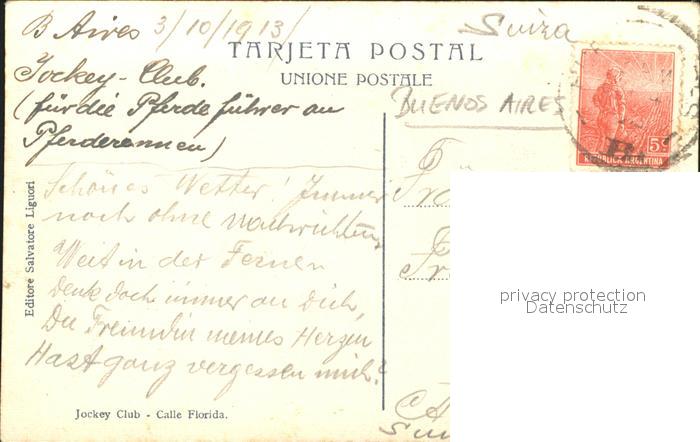 B Aires 3/10/1913/
Suiza
TARJETA POSTAL
UNIONE POSTALE
Jockey-Club.
(für die Pferdeführer an
Pferderennen)
BUENOS AIRES
5c
REPUBLICA ARGENTINA
Schönes Wetter! Immer
noch ohne Nachrichten
Weit in der Fernen
Denk doch immer an Dich,
Du Freundin meines Herzen
Hast ganz vergessen mich?
Editore Salvatore Liguori
Jockey Club - Calle Florida.
privacy protection
Datenschutz